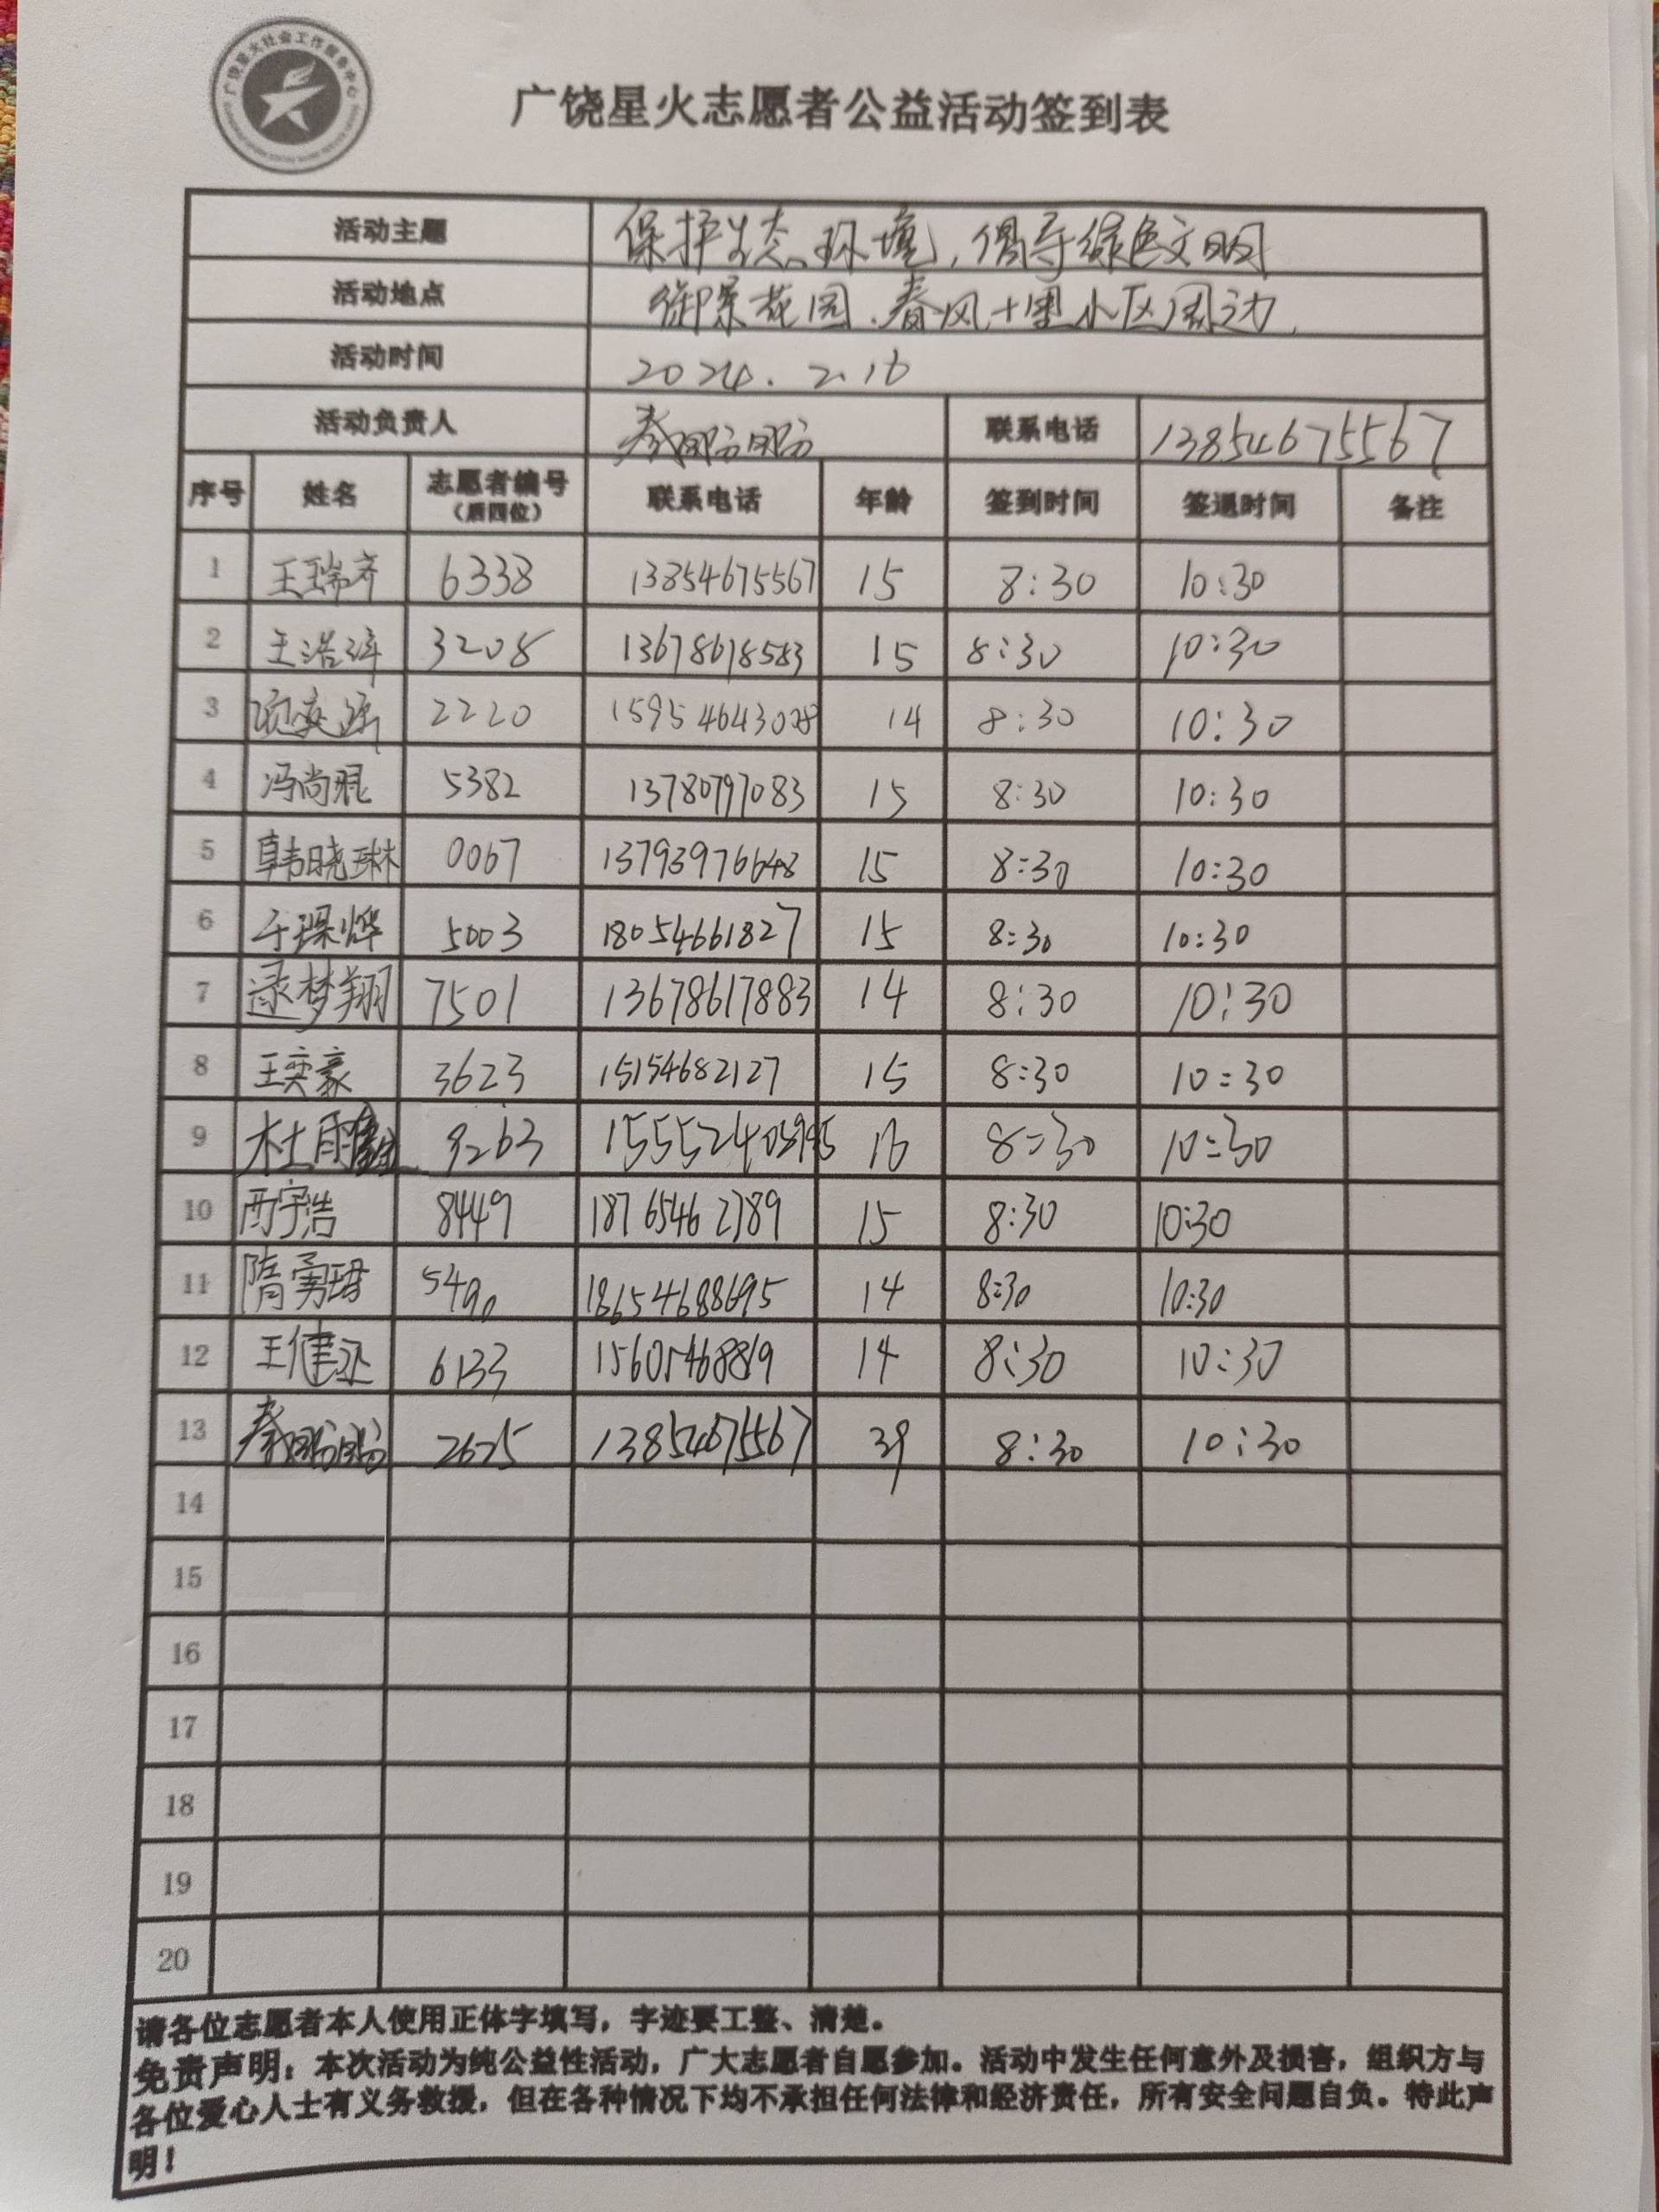 广饶星火社会工作服务中心
广饶星火志愿者公益活动签到表
活动主题 保护生态环境,倡导绿色文明
活动地点 御景花园.春风十里小区周边
活动时间 2024.2.16
活动负责人 联系电话 13854675567
序号 姓名 志愿者编号(后四位) 联系电话 年龄 签到时间 签退时间 备注
1 王瑞齐 6338 13854675567 15 8:30 10:30
2 王浩 3208 13678678583 15 8:30 10:30
3 2220 14 8:30 10:30
4 冯尚琨 5382 13780797083 15 8:30 10:30
5 韩晓琳 0067 13793976648 15 8:30 10:30
6 于琛烨 5003 18054661827 15 8:30 10:30
7 逯梦翔 7501 13678617883 14 8:30 10:30
8 王奕豪 3623 15154682127 15 8:30 10:30
9 杜雨 9263 16 8:30 10:30
10 宇浩 8449 18765462789 15 8:30 10:30
11 隋勇 5490 18654688695 14 8:30 10:30
12 王健丞 6133 15605468819 14 8:30 10:30
13 2625 13854675567 39 8:30 10:30
14
15
16
17
18
19
20
请各位志愿者本人使用正体字填写,字迹要工整、清楚。
免责声明:本次活动为纯公益性活动,广大志愿者自愿参加。活动中发生任何意外及损害,组织方与
各位爱心人士有义务救援,但在各种情况下均不承担任何法律和经济责任,所有安全问题自负。特此声
明!